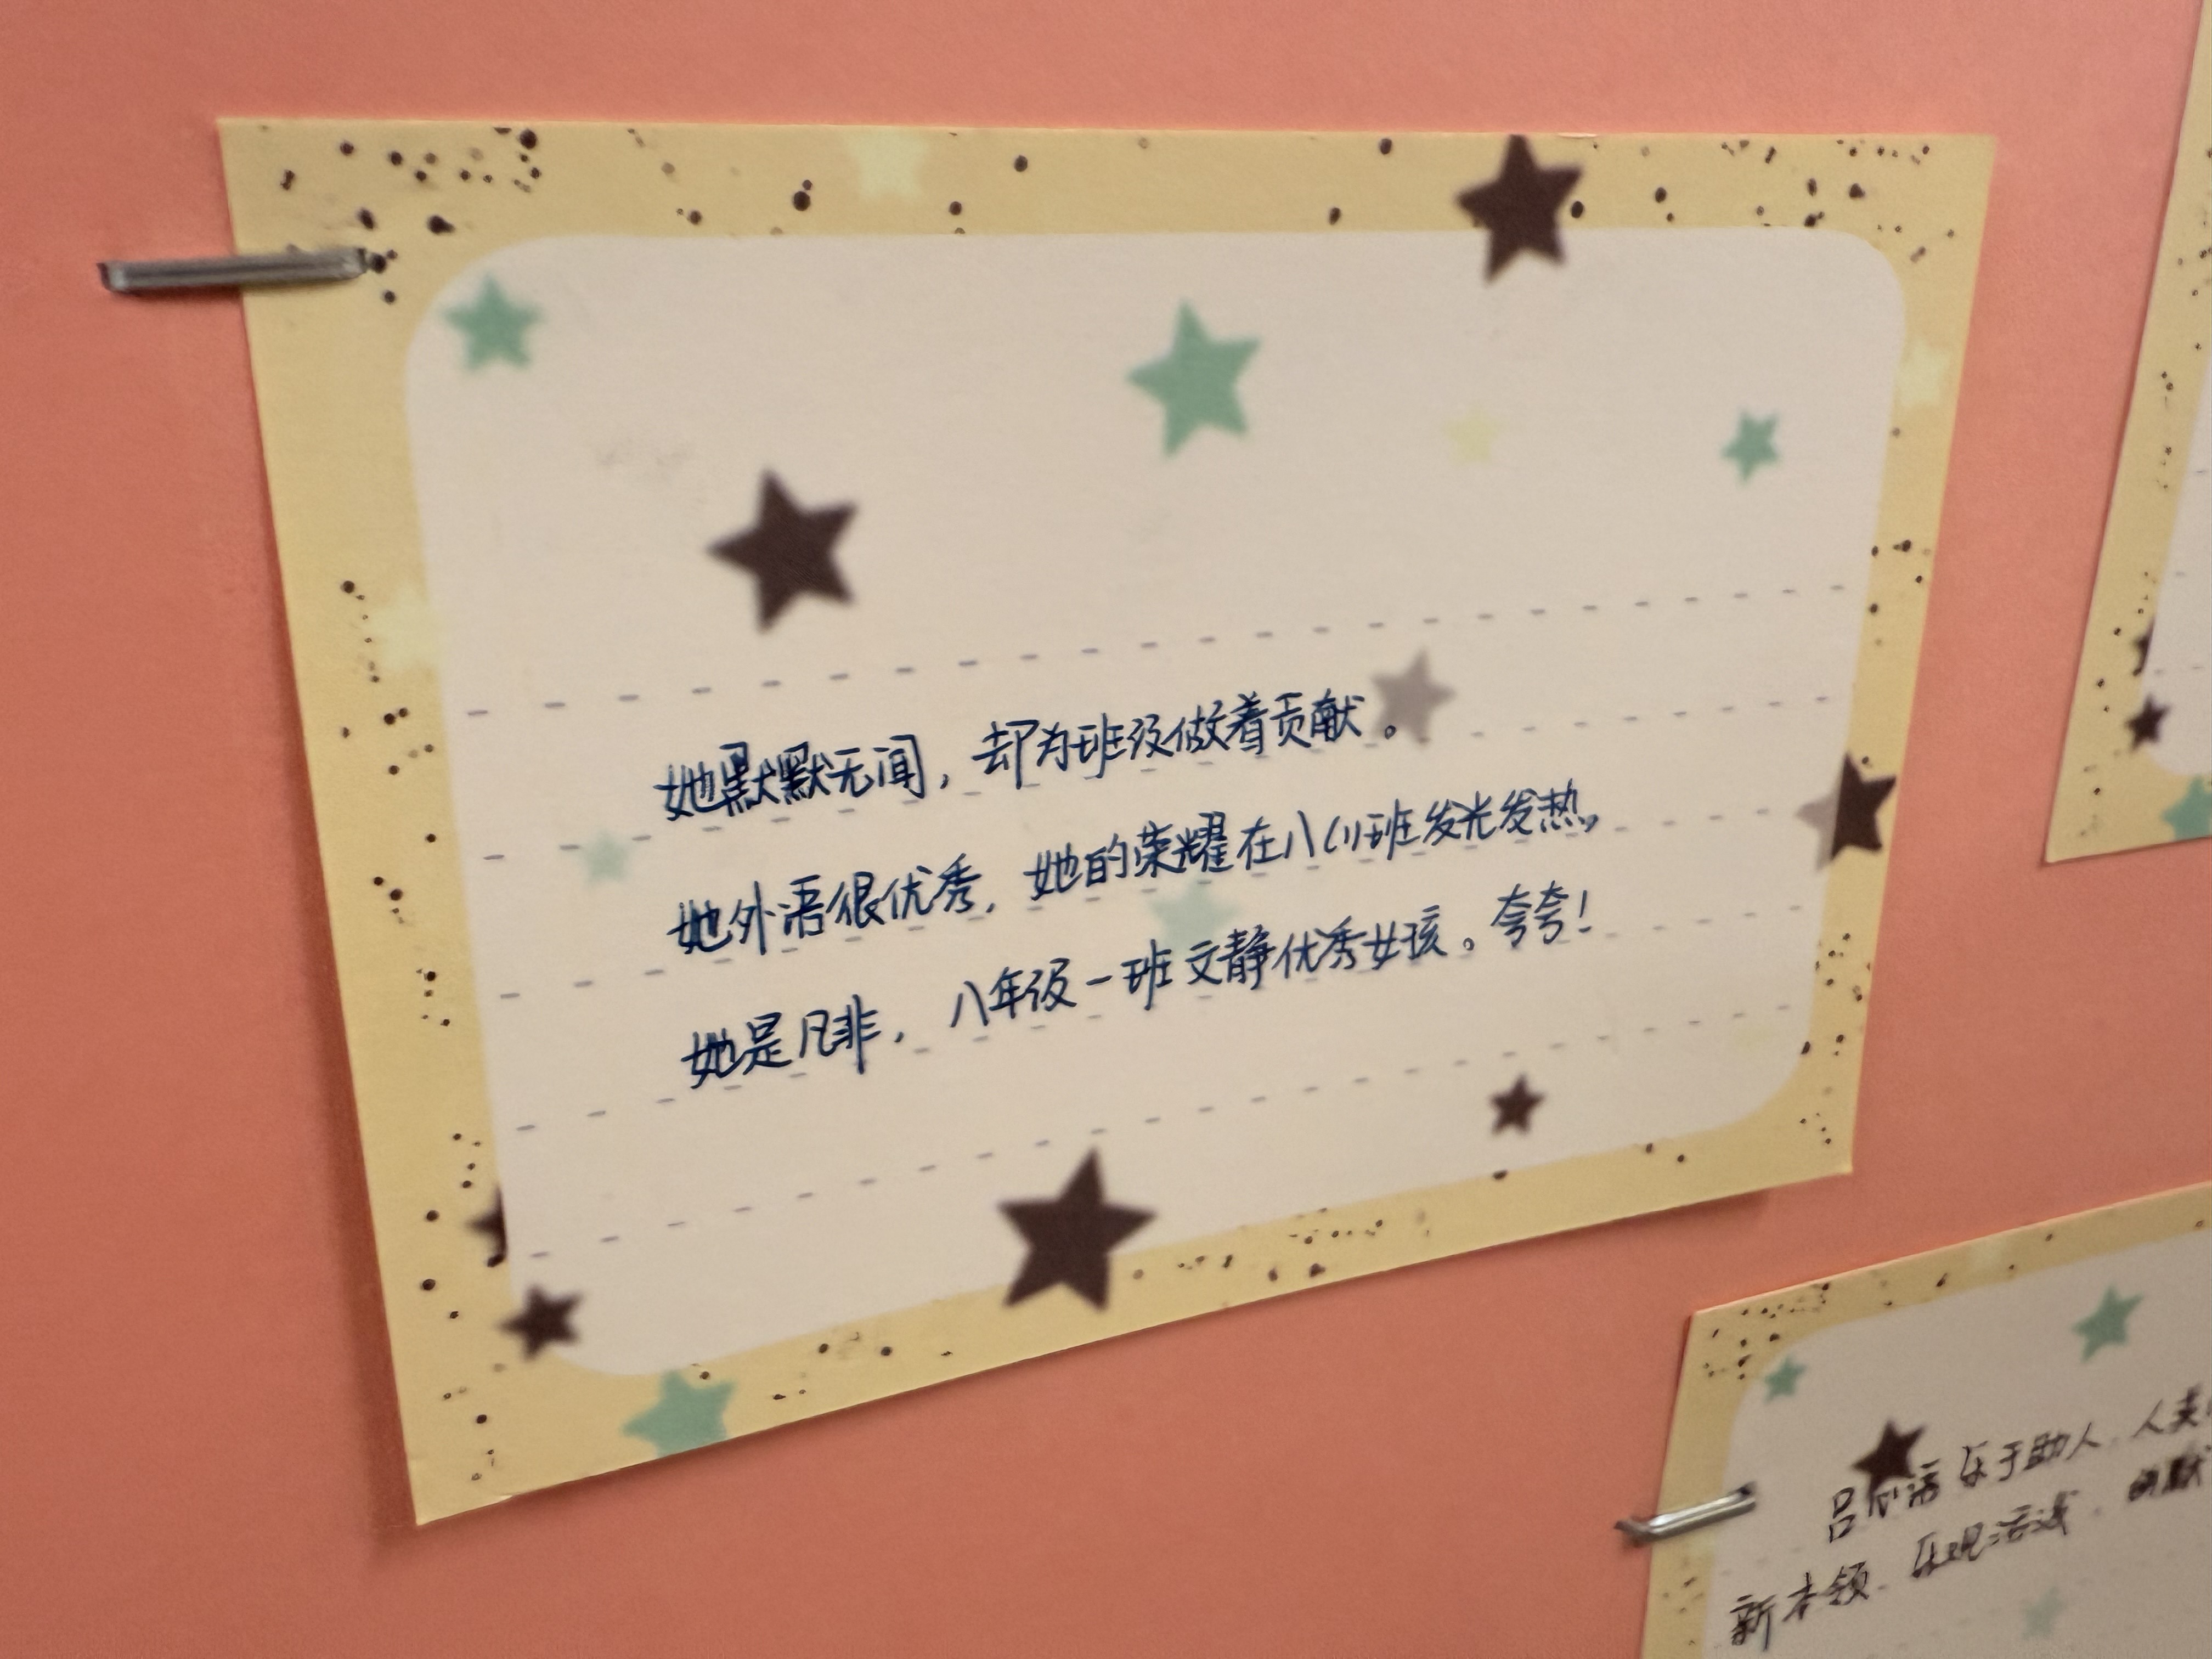 她默默无闻，却为班级做着贡献。
她外语很优秀，她的荣耀在八(1)班发光发热，
她是凡非，八年级一班文静优秀女孩。夸夸！
吕 语 乐于助人，人美
新本领、乐观活泼、幽默